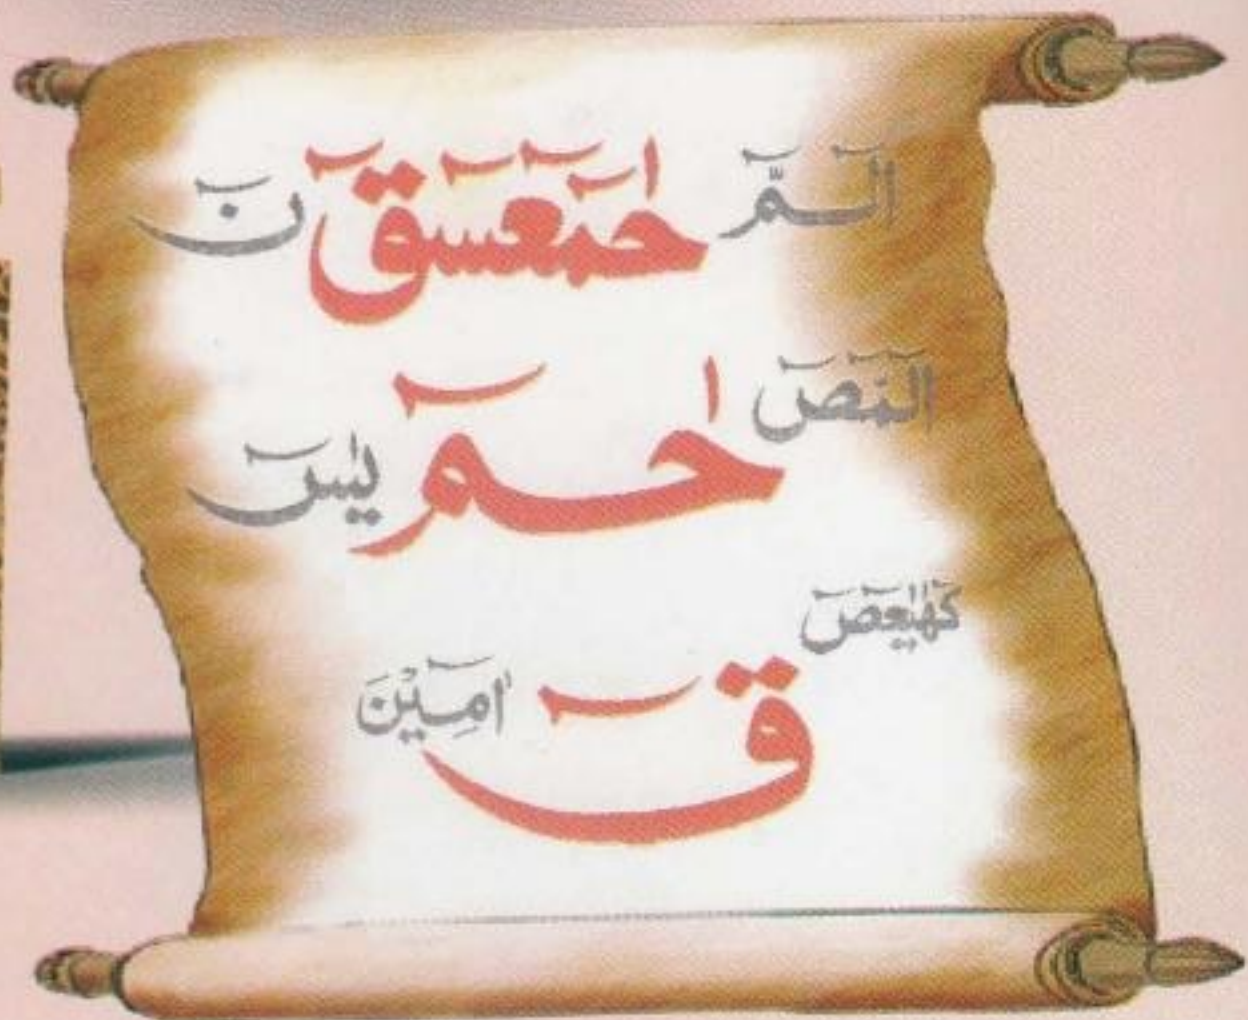 الٓمّٓ حٰمٓعٓسٓقٓ نٓ
الٓمٓصٓ حٰمٓ يٰسٓ
كٓهٰيٰعٓصٓ
قٓ اٰمِيْنَ